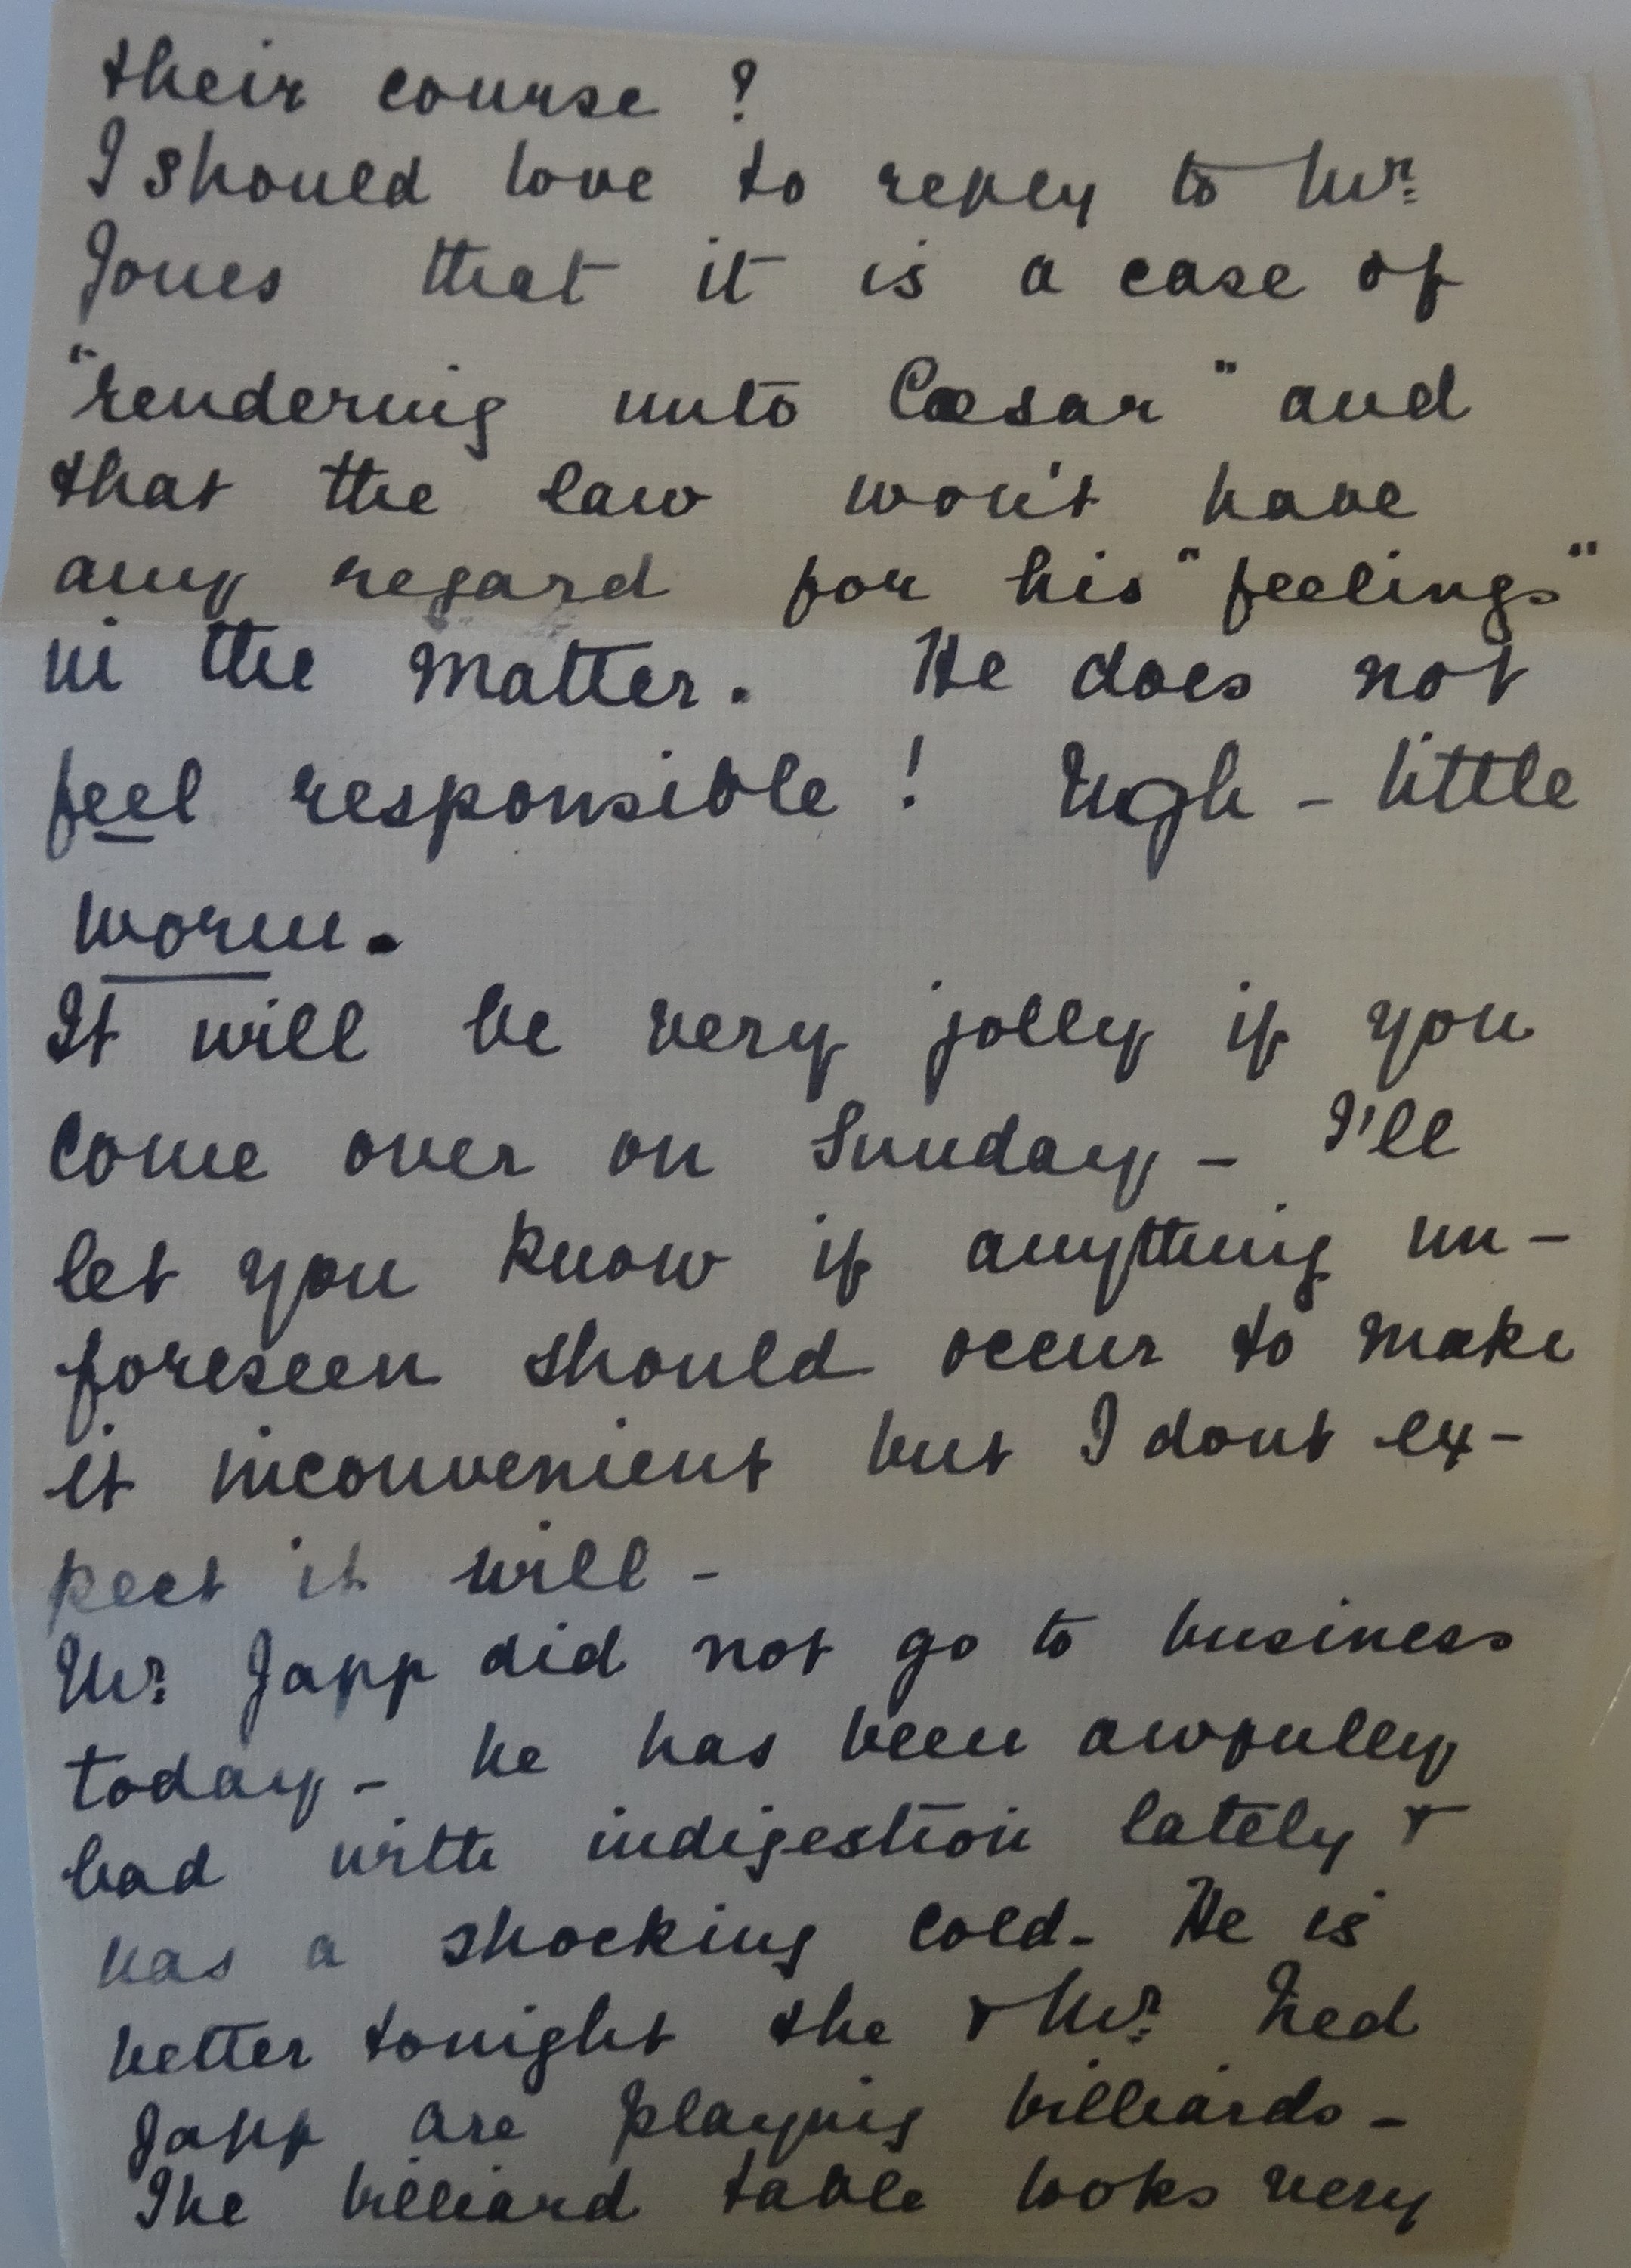 their course ?
I should love to reply to Mr.
Jones that it is a case of
"rendering unto Cæsar" and
that the law won't have
any regard for his "feelings"
in the matter. He does not
feel responsible ! Ugh - little
worm.
It will be very jolly if you
come over on Sunday - I'll
let you know if anything un-
foreseen should occur to make
it inconvenient but I dont ex-
pect it will -
Mr. Japp did not go to business
today - he has been awfully
bad with indigestion lately &
has a shocking cold - He is
better tonight & he & Mr. Ned
Japp are playing billiards -
The billiard table looks very